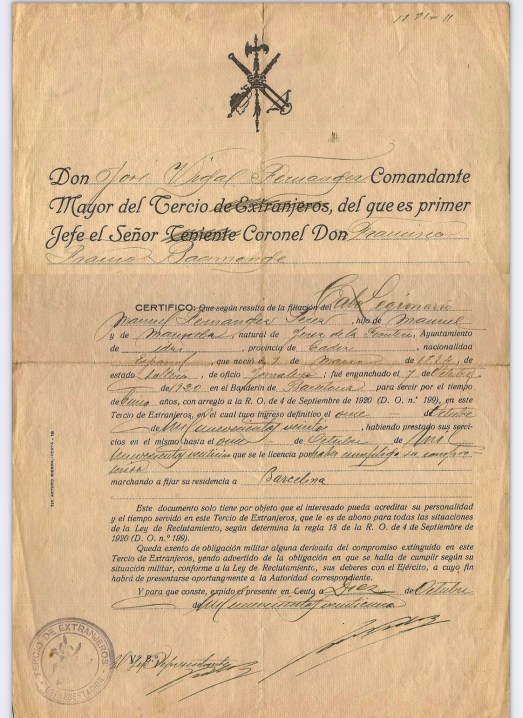 Don José Vidal Fernandez Comandante
Mayor del Tercio de Extranjeros, del que es primer
Jefe el Señor Teniente Coronel Don Francisco
Franco Baamonde
CERTIFICO: Que según resulta de la filiación del Cabo Legionario
Manuel Fernandez Perez, hijo de Manuel
y de natural de Jerez de la Frontera, Ayuntamiento
de id, provincia de Cadiz, nacionalidad
español, que nació en de Marzo de
estado soltero, de oficio Jornalero; fue enganchado el 7 de Octubre
de 1920 en el Banderín de Barcelona para servir por el tiempo
de años, con arreglo a la R. O. de 4 de Septiembre de 1920 (D. O. n.° 199), en este
Tercio de Extranjeros, en el cual tuvo ingreso definitivo el once de Octubre
de Mil novecientos veinte, habiendo prestado sus servi-
cios en el mismo hasta el once de Octubre de Mil
novecientos veintiuno que se le licencia por haber cumplido su compro-
miso
marchando a fijar su residencia a Barcelona
Este documento solo tiene por objeto que el interesado pueda acreditar su personalidad
y el tiempo servido en este Tercio de Extranjeros, que le es de abono para todas las situaciones
de la Ley de Reclutamiento, según determina la regla 18 de la R. O. de 4 de Septiembre de
1920 (D. O. n.° 199).
Queda exento de obligación militar alguna derivada del compromiso extinguido en este
Tercio de Extranjeros, pendo advertido de la obligación en que se halla de cumplir según su
situación militar, conforme a la Ley de Reclutamiento, sus deberes con el Ejército, a cuyo fin
habrá de presentarse oportungmente a la Autoridad correspondiente.
Y para que conste, expido el presente en Ceuta a Diez de Octubre
de Mil novecientos veintiuno
V.° B.°
El Jefe Representante
TERCIO DE EXTRANJEROS
REPRESENTACION